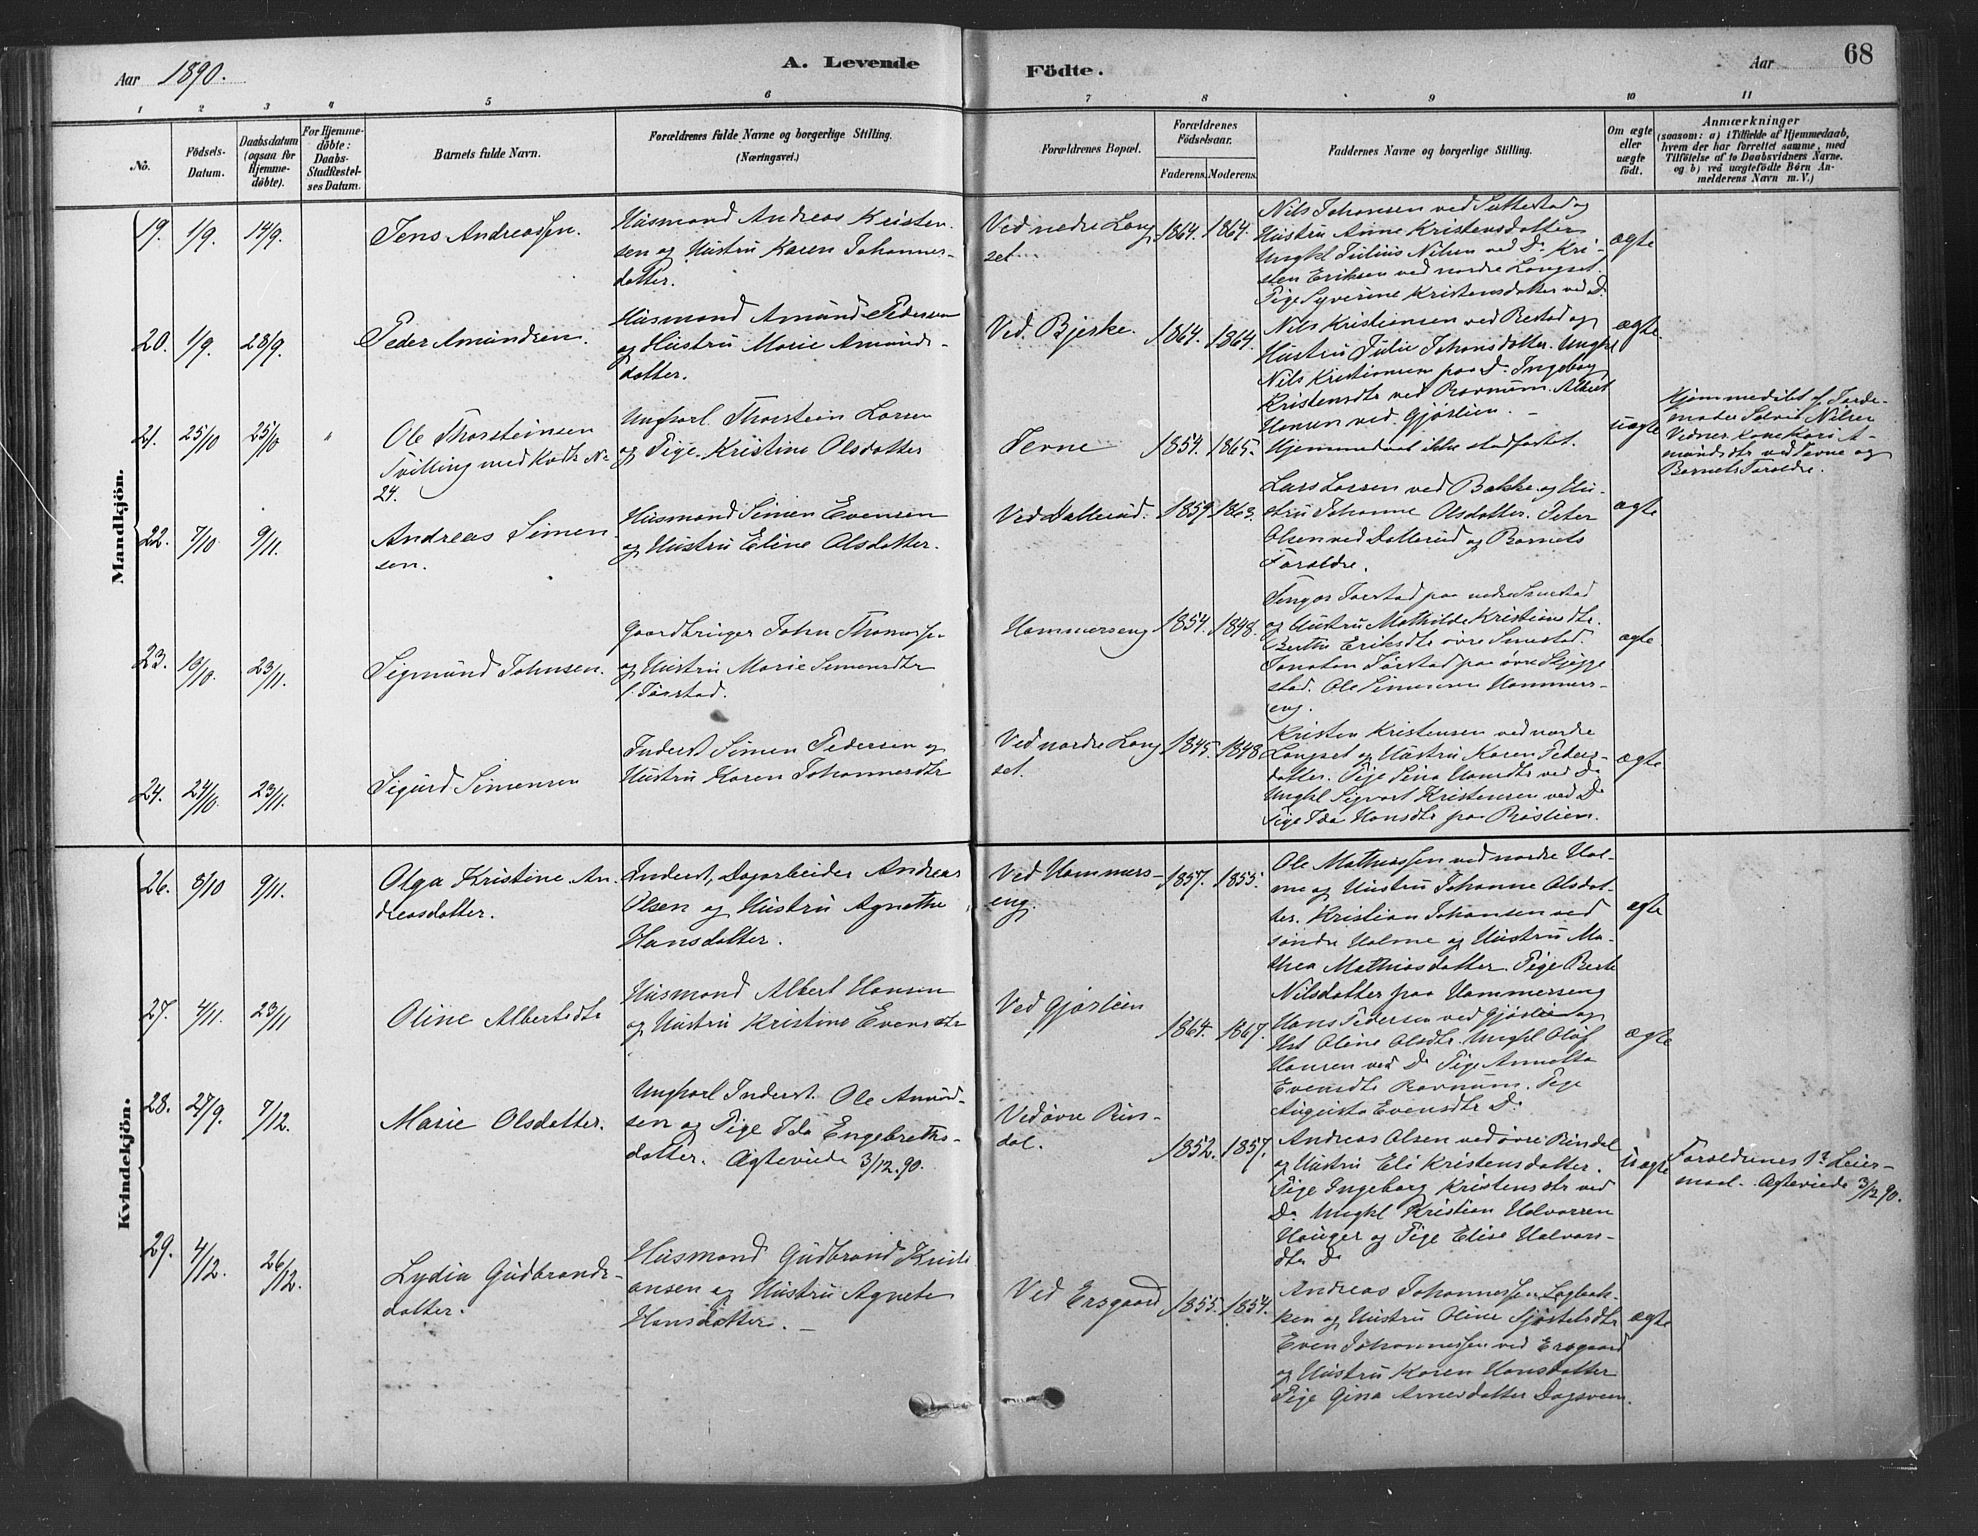 Aar 1890.
A. Levende
Födte.
Aar
68
1 2 3 4 5 6 7 8 9 10 11
No.
Födsels-
Datum.
Daabsdatum
(ogsaa for
Hjemme-
döbte).
For Hjemme-
döbte:
Daabs-
Stadfæstel-
ses Datum.
Barnets fulde Navn.
Forældrenes fulde Navne og borgerlige Stilling.
(Næringsvei.)
Forældrenes Bopæl.
Forældrenes
Födselsaar.
Faderens. Moderens.
Faddernes Navne og borgerlige Stilling.
Om ægte
eller
uægte
født.
Anmærkninger
(saasom: a) i Tilfælde af Hjemmedaab,
hvem der har forrettet samme, med
Tilföielse af to Daabsvidners Navne.
og b) ved uægtefödte Börn An-
melderens Navn m. V.)
Mandkjön.
19. 1/9. 14/9.
Jens Andreassen.
Husmand Andreas Kristen-
sen og Hustru Karen Johannes-
datter.
Ved nedre Lang
set.
1864. 1864.
Nils Johansen ved Sutterstad og
Hustru Anne Kristensdatter
Ungkl Julius Nilsen ved Do Kri-
sten Eriksen ved nordre Longset.
Pige Syverine Kristensdatter ved Do
ægte
20. 1/9. 28/9.
Peder Amundsen.
Husmand Amund Pedersen
og Hustru Marie Amunds-
datter.
Ved Bjerke.
1864. 1864.
Nils Kristiansen ved Restad og
Hustru Julie Johansdatter. Ungkl
Nils Kristiansen paa Do Ingeborg
Kristensdtr ved Ravnum. Albert
Hansen ved Gjøslien.
ægte.
21. 25/10 25/10 "
Ole Thorsteinsen
Tvilling med Kvdk No
24.
Ungkarl Thorstein Larsen
og Pige Kristine Olsdatter
Terne
1854. 1865.
Hjemmedaab ikke stadfæstet.
uægte
Hjemmedøbt af Jorde-
moder Solvei Nilsen
Vidner Kone Kari A-
mundsdtr ved Terne og
Barnets Forældre.
22. 7/10 9/11.
Andreas Simen
sen.
Husmand Simen Evensen
og Hustru Eline Olsdatter.
Ved Dallerud.
1859 1863.
Lars Larsen ved Bakke og Hu-
stru Johanne Olsdatter. Peter
Olsen ved Dallerud og Barnets
Forældre.
ægte
23. 19/10 23/11.
Sigmund Johnsen.
Gaardbruger John Thomass.
og Hustru Marie Simensdtr
Hammerseng
1854. 1848.
og Hustru Mathilde Kristiansdtr.
Berthe Eriksdtr øvre Smestad.
Jonatan Sørstad paa øvre Skjegge
stad. Ole Simensen Hammers-
eng.
ægte
24. 24/10 23/11.
Sigurd Simensen
Inderst Simen Pedersen og
Hustru Karen Johannesdtr
Ved nordre Long
set.
1845. 1848
Kristen Kristensen ved nordre
Longset og Hustru Karen Peders-
datter. Pige Sina Hansdtr ved Do
Ungkl Sigvart Kristensen ved Do
Pige Ida Hansdtr paa Røslien.
ægte
Kvindekjön.
26. 8/10 9/11.
Olga Kristine An
dreasdatter.
Inderst, Dagarbeider Andreas
Olsen og Hustru Agnethe
Hansdatter.
Ved Hammers-
eng.
1857. 1855.
Ole Mathiassen ved nordre Hol-
me og Hustru Johanne Olsdat-
ter. Kristian Johansen ved
søndre Holme og Hustru Ma-
thea Mathiasdatter. Pige Berte
Nilsdatter paa Hammerseng
ægte
27. 4/11. 23/11
Oline Albertsdtr
Husmand Albert Hansen
og Hustru Kristine Evensdtr
Ved Gjøslien
1864. 1867.
Hans Pedersen ved Gjøslien og
Hst Oline Olsdtr. Ungkl Oluf
Hansen ved Do Pige Annette
Evensdtr Ravnum. Pige
Augusta Evensdtr Do
ægte
28. 27/9. 7/12.
Marie Olsdatter.
Ungkarl Inderst. Ole Amund-
sen og Pige Ida Engebrets-
datter. Ægteviede 3/12.90.
Ved øvre Rin-
dal.
1852. 1857.
Andreas Olsen ved øvre Rindal
og Hustru Eli Kristensdatter.
Pige Ingeborg Kristensdtr ved
Do Ungkl Kristian Halvorsen
Hauger og Pige Elise Halvors-
dtr Do
uægte
Forældrenes 1ste Leier-
maal. Ægteviede 3/12.90.
29. 4/12. 26/12.
Lydia Gudbrands-
datter.
Husmand Gudbrand Kristi
ansen og Hustru Agnete
Hansdatter.
Ved Ersgaard
1855. 1854.
Andreas Johannessen Lagbak-
ken og Hustru Oline Sjøstelsdtr
Even Johannessen ved Ersgaard
og Hustru Karen Hansdatter
Pige Gina Arnesdatter Dagsveen.
ægte